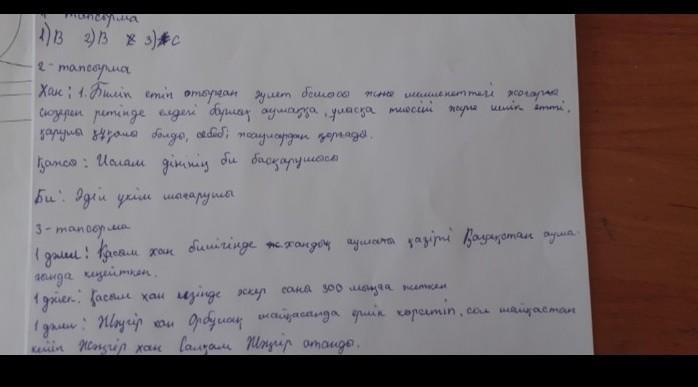 тапсырма
1) В 2) В 3) С
2 - тапсырма
Хан: 1. Билік етіп отырған әулет басшысы және мемлекеттегі жоғарғы
сюзерен ретінде елдегі барлық аумаққа, ұлысқа тиесілі және иелік етті,
қарулы құқылы болды, себебі жаулардан қорғады.
Ислам дінінің би басқарушысы
Би: Әділ үкім шығарушы
3 - тапсырма
1 дәлел: Қасым хан билігінде хандық аумағы қазіргі Қазақстан аума-
ғында кеңейткен.
1 дәлел: Қасым хан кезінде әскер саны 300 мыңға жеткен
1 дәлел: Жәңгір хан Орбұлақ шайқасында ерлік көрсетіп, сол шайқастан
кейін Жәңгір хан Салқам Жәңгір атанды.